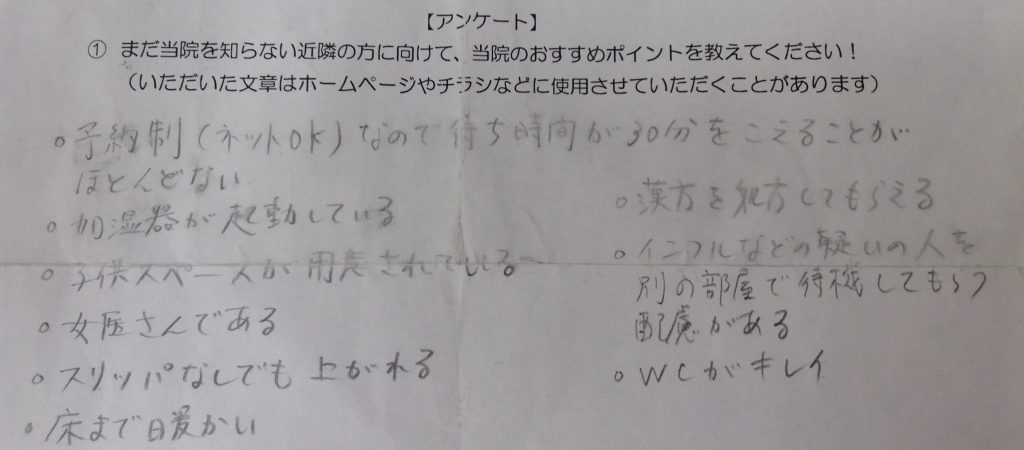 【アンケート】
① まだ当院を知らない近隣の方に向けて、当院のおすすめポイントを教えてください！
（いただいた文章はホームページやチラシなどに使用させていただくことがあります）
○予約制（ネットOK）なので待ち時間が30分をこえることが
ほとんどない
○加湿器が起動している
○子供スペースが用意されている。
○女医さんである
○スリッパなしでも上がれる
○床まで暖かい
○漢方を処方してもらえる
○インフルなどの疑いの人を
別の部屋で待機してもらう
配慮がある
○WCがキレイ